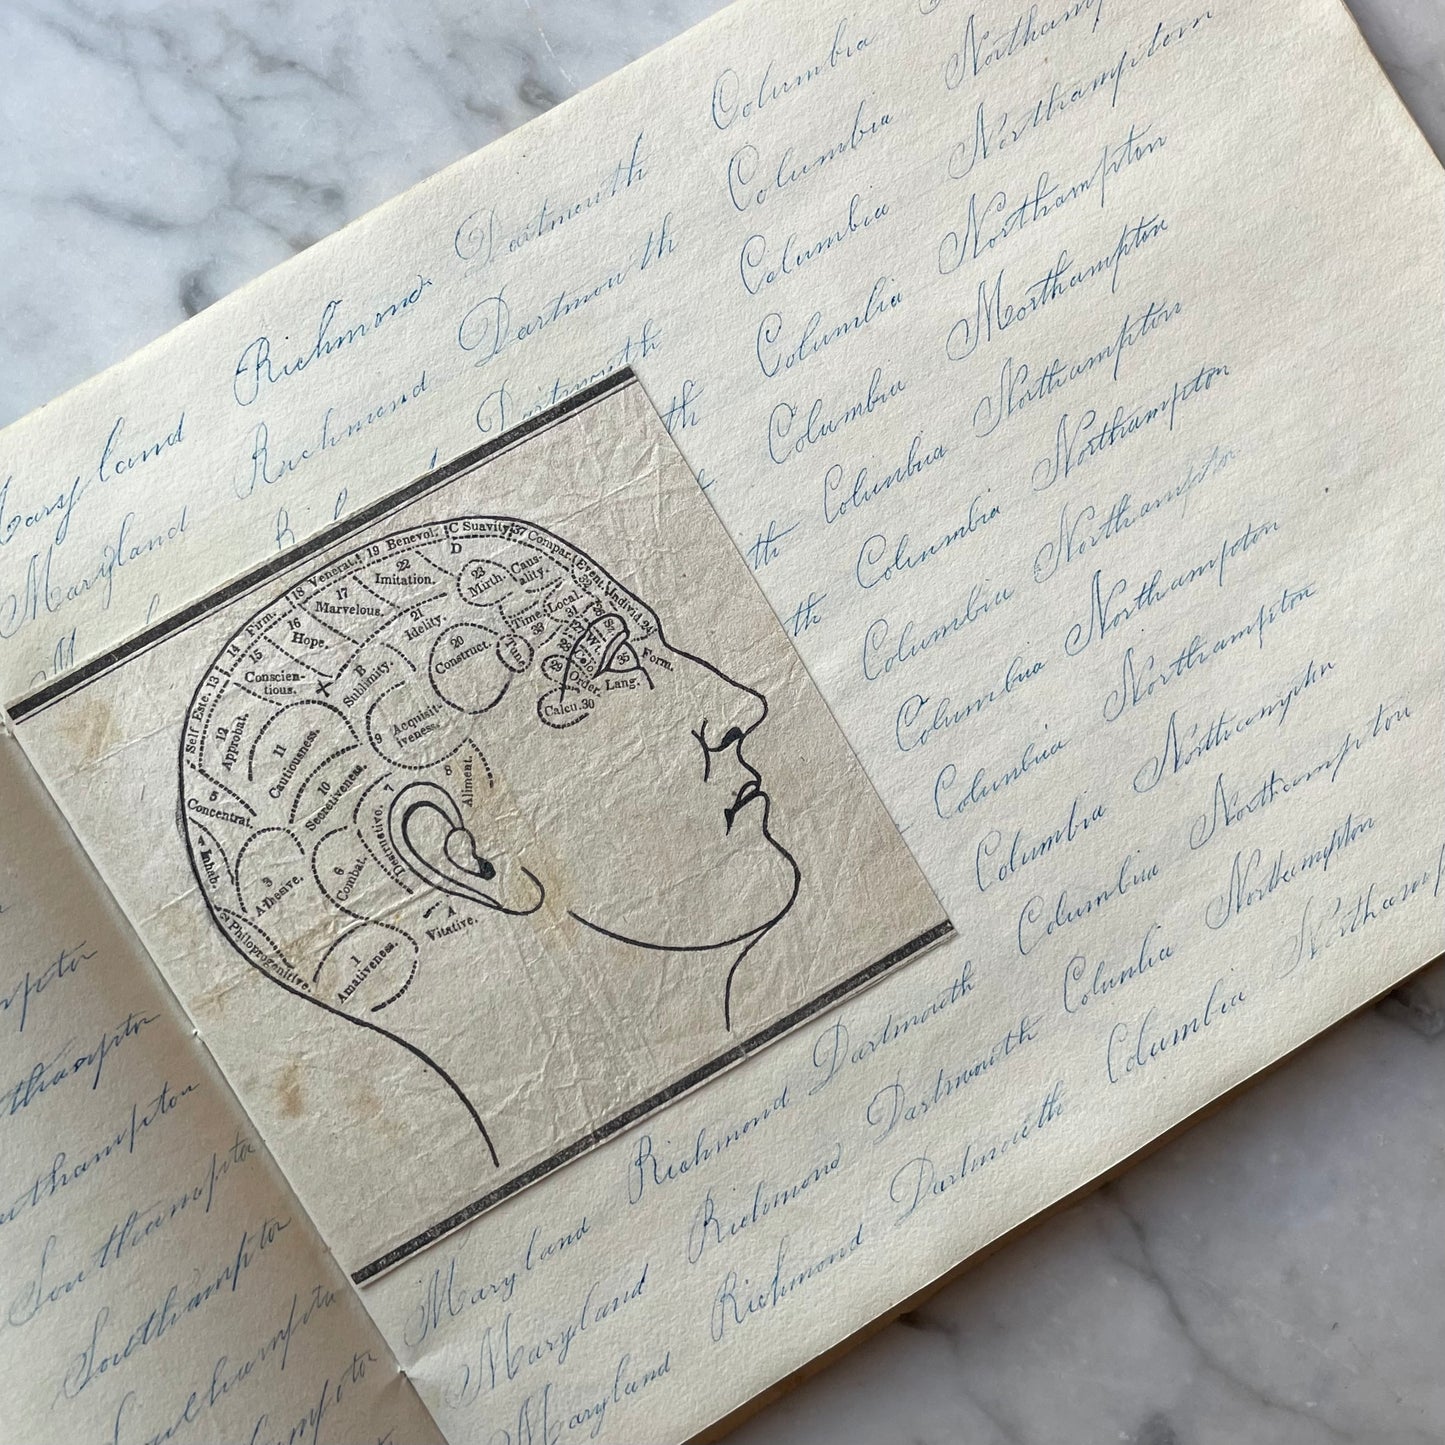 Columbia
Maryland Richmond Dartmouth Columbia Northampton
Maryland Richmond Dartmouth Columbia Northampton
Dartmouth Columbia Northampton
th Columbia Morthampton
Columbia Northampton
th Columbia Northampton
th Columbia Northampton
Columbia Northampton
Columbia Northampton
Columbia Northampton
Columbia Northampton
Maryland Richmond Dartmouth Columbia Northampton
Maryland Richmond Dartmouth Columbia Northampton
Maryland Richmond Dartmouth Columbia
Southampton
Southampton
Southampton
13 Self Este.
14
15
Firm.
18 Venerat.
19 Benevol.
C Suavity
37 Compar.
Event.
Individ. 24
D
22 Imitation.
17 Marvelous.
16 Hope.
Conscientious.
12 Approbat.
11 Cautiousness.
10 Secretiveness.
B Sublimity.
21 Idelity.
20 Construct.
23 Mirth.
Causality.
Time.
33
Local.
31
Tun
Form.
35
Lang.
Order.
29
Calcu. 30
9 Acquisitiveness.
8 Aliment.
7 Destructive.
5 Concentrat.
4 Inhab.
3 Adhesive.
6 Combat.
A Vitative.
2 Philoprogenitive.
1 Amativeness.